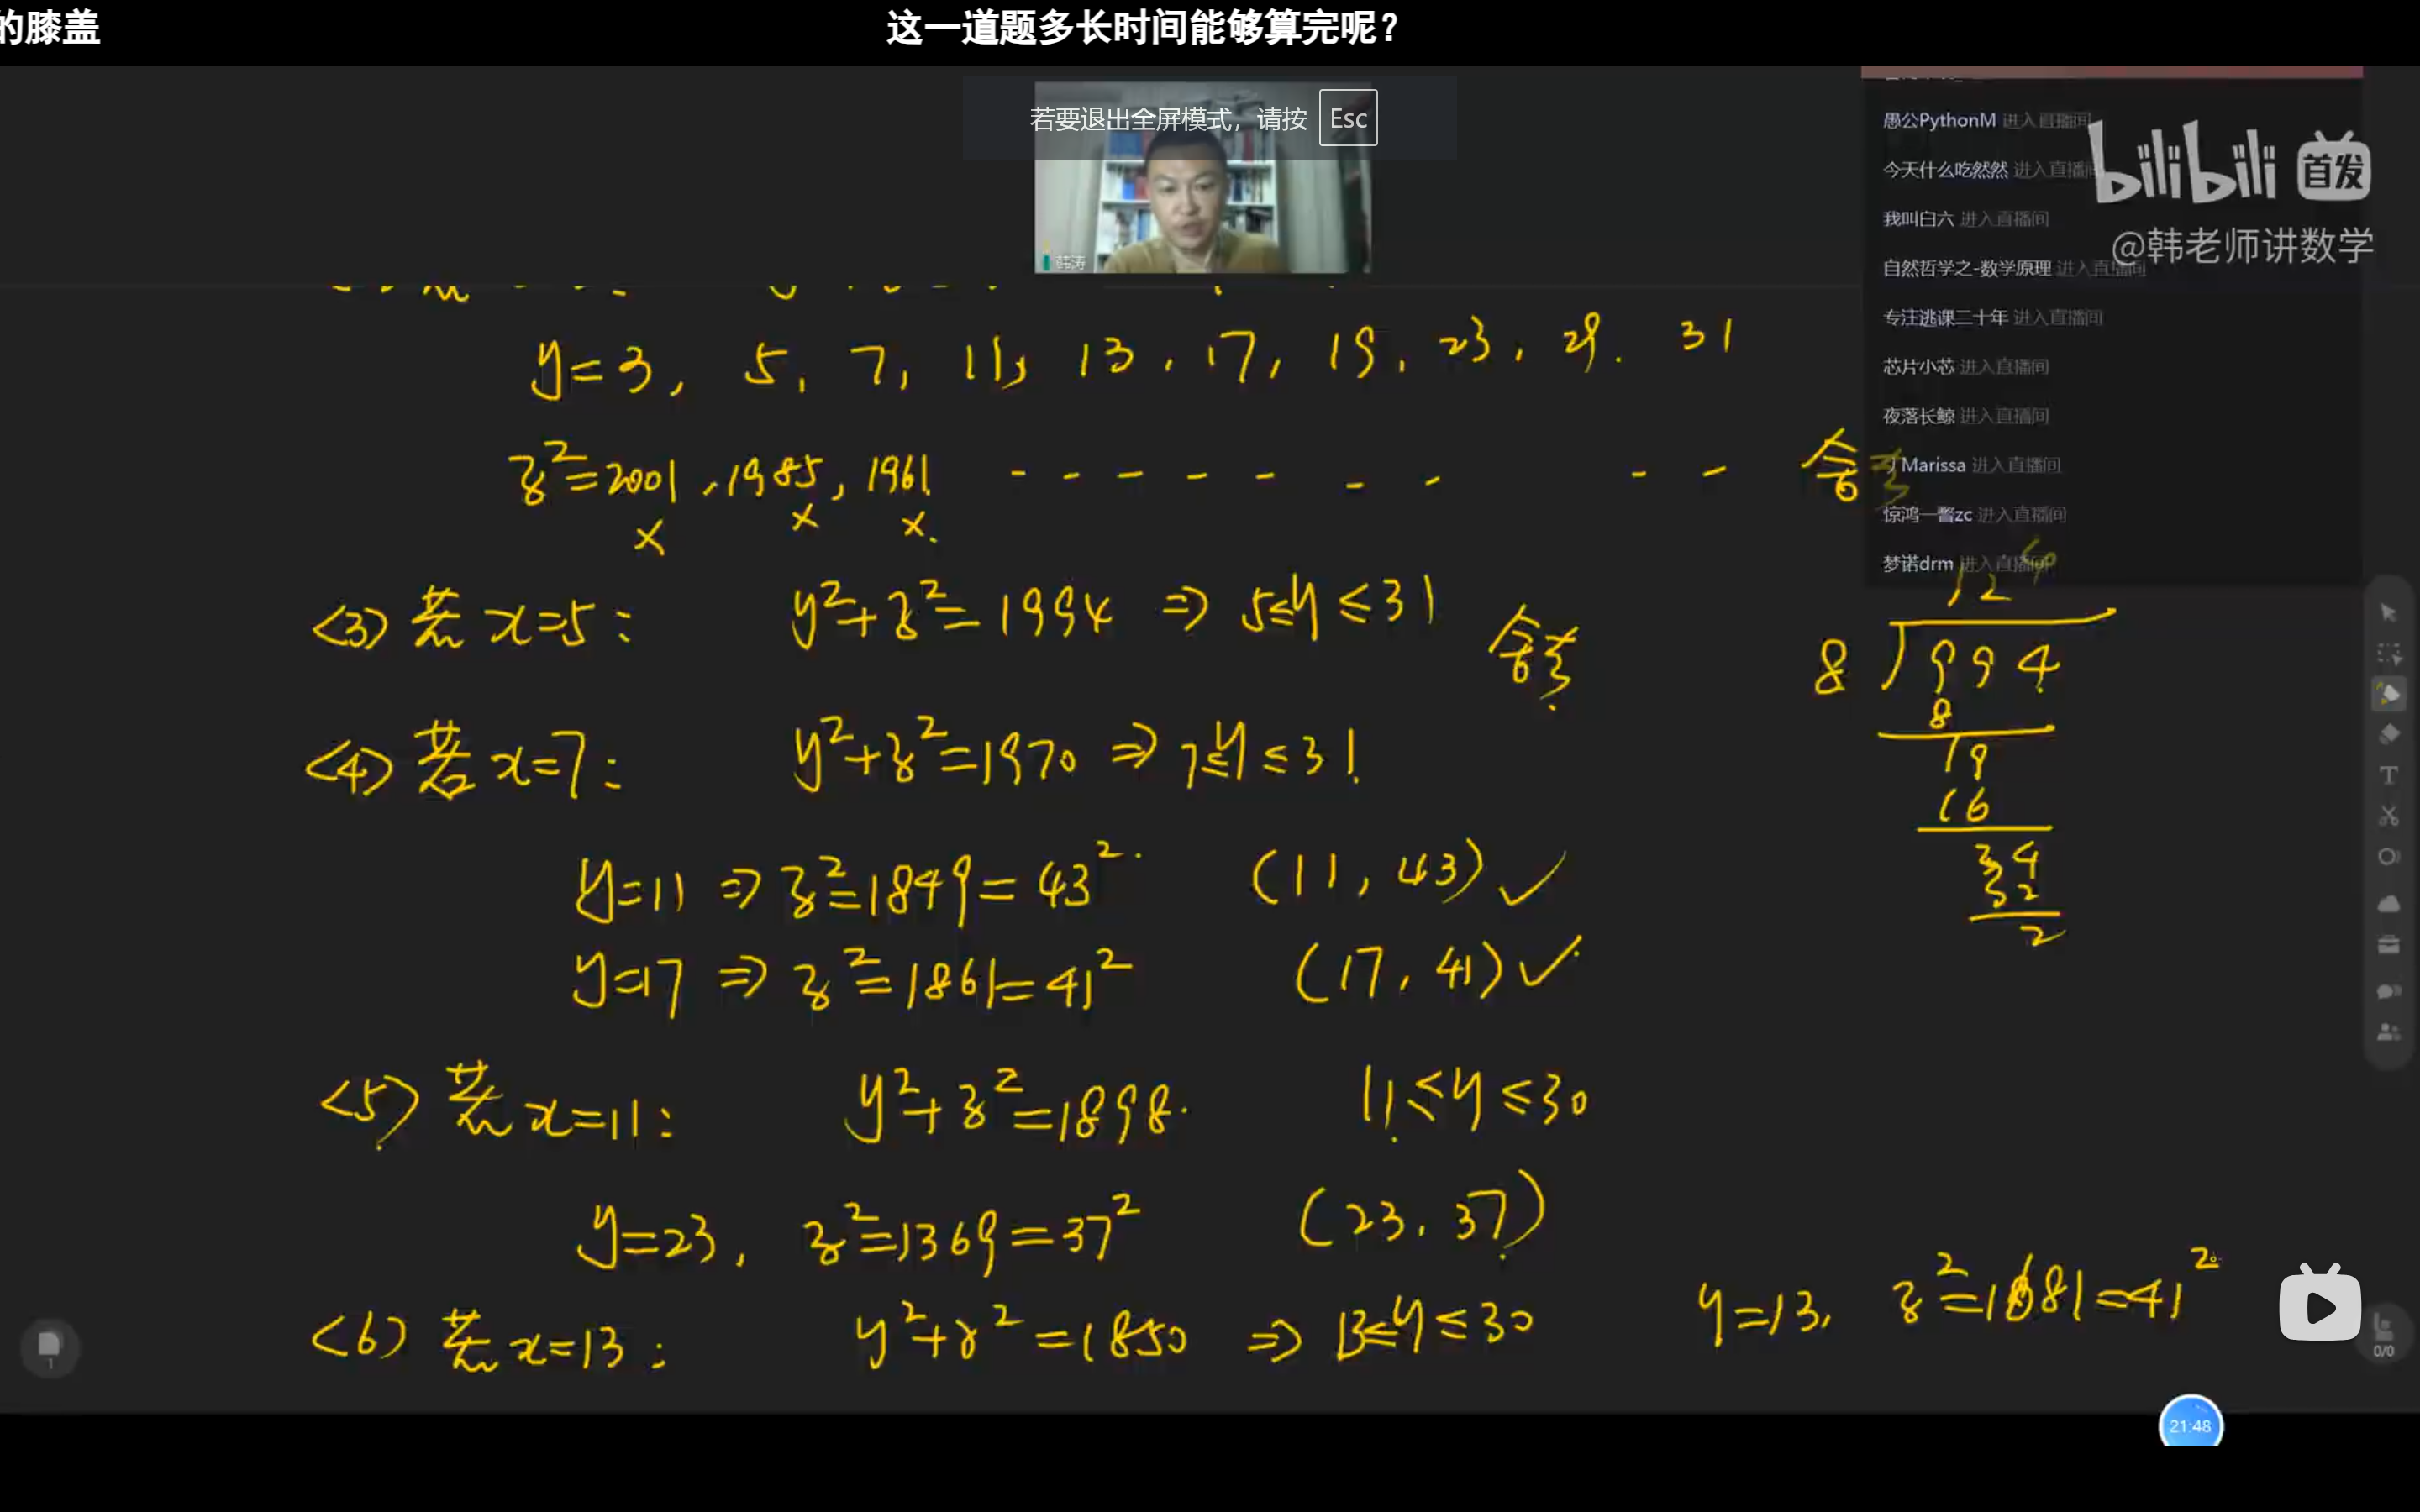 的膝盖
这一道题多长时间能够算完呢?
若要退出全屏模式，请按 Esc
韩涛
愚公PythonM 进入直播间
今天什么吃然然 进入直播间
我叫白六 进入直播间
自然哲学之-数学原理 进入直播间
专注逃课二十年 进入直播间
芯片小芯 进入直播间
夜落长鲸 进入直播间
Marissa 进入直播间
惊鸿一瞥zc 进入直播间
梦诺drm 进入直播间
bilibili 首发
@韩老师讲数学
y=3, 5, 7, 11, 13, 17, 19, 23, 29. 31
z²=2001, 1985, 1961. - - - - - - - - - 舍弃
× × ×.
<3> 若 x=5: y²+z²=1994 ⇒ 5≤y≤31 舍弃
<4> 若 x=7: y²+z²=1970 ⇒ 7≤y≤31.
y=11 ⇒ z²=1849=43². (11, 43) ✓
y=17 ⇒ z²=1861=41² (17, 41) ✓
<5> 若 x=11: y²+z²=1898. 11≤y≤30
y=23, z²=1369=37² (23, 37)
<6> 若 x=13: y²+z²=1850 ⇒ 13≤y≤30 y=13, z²=1681=41²
12
8 ) 994
8
19
16
34
32
2
T
1
0/0
21:48